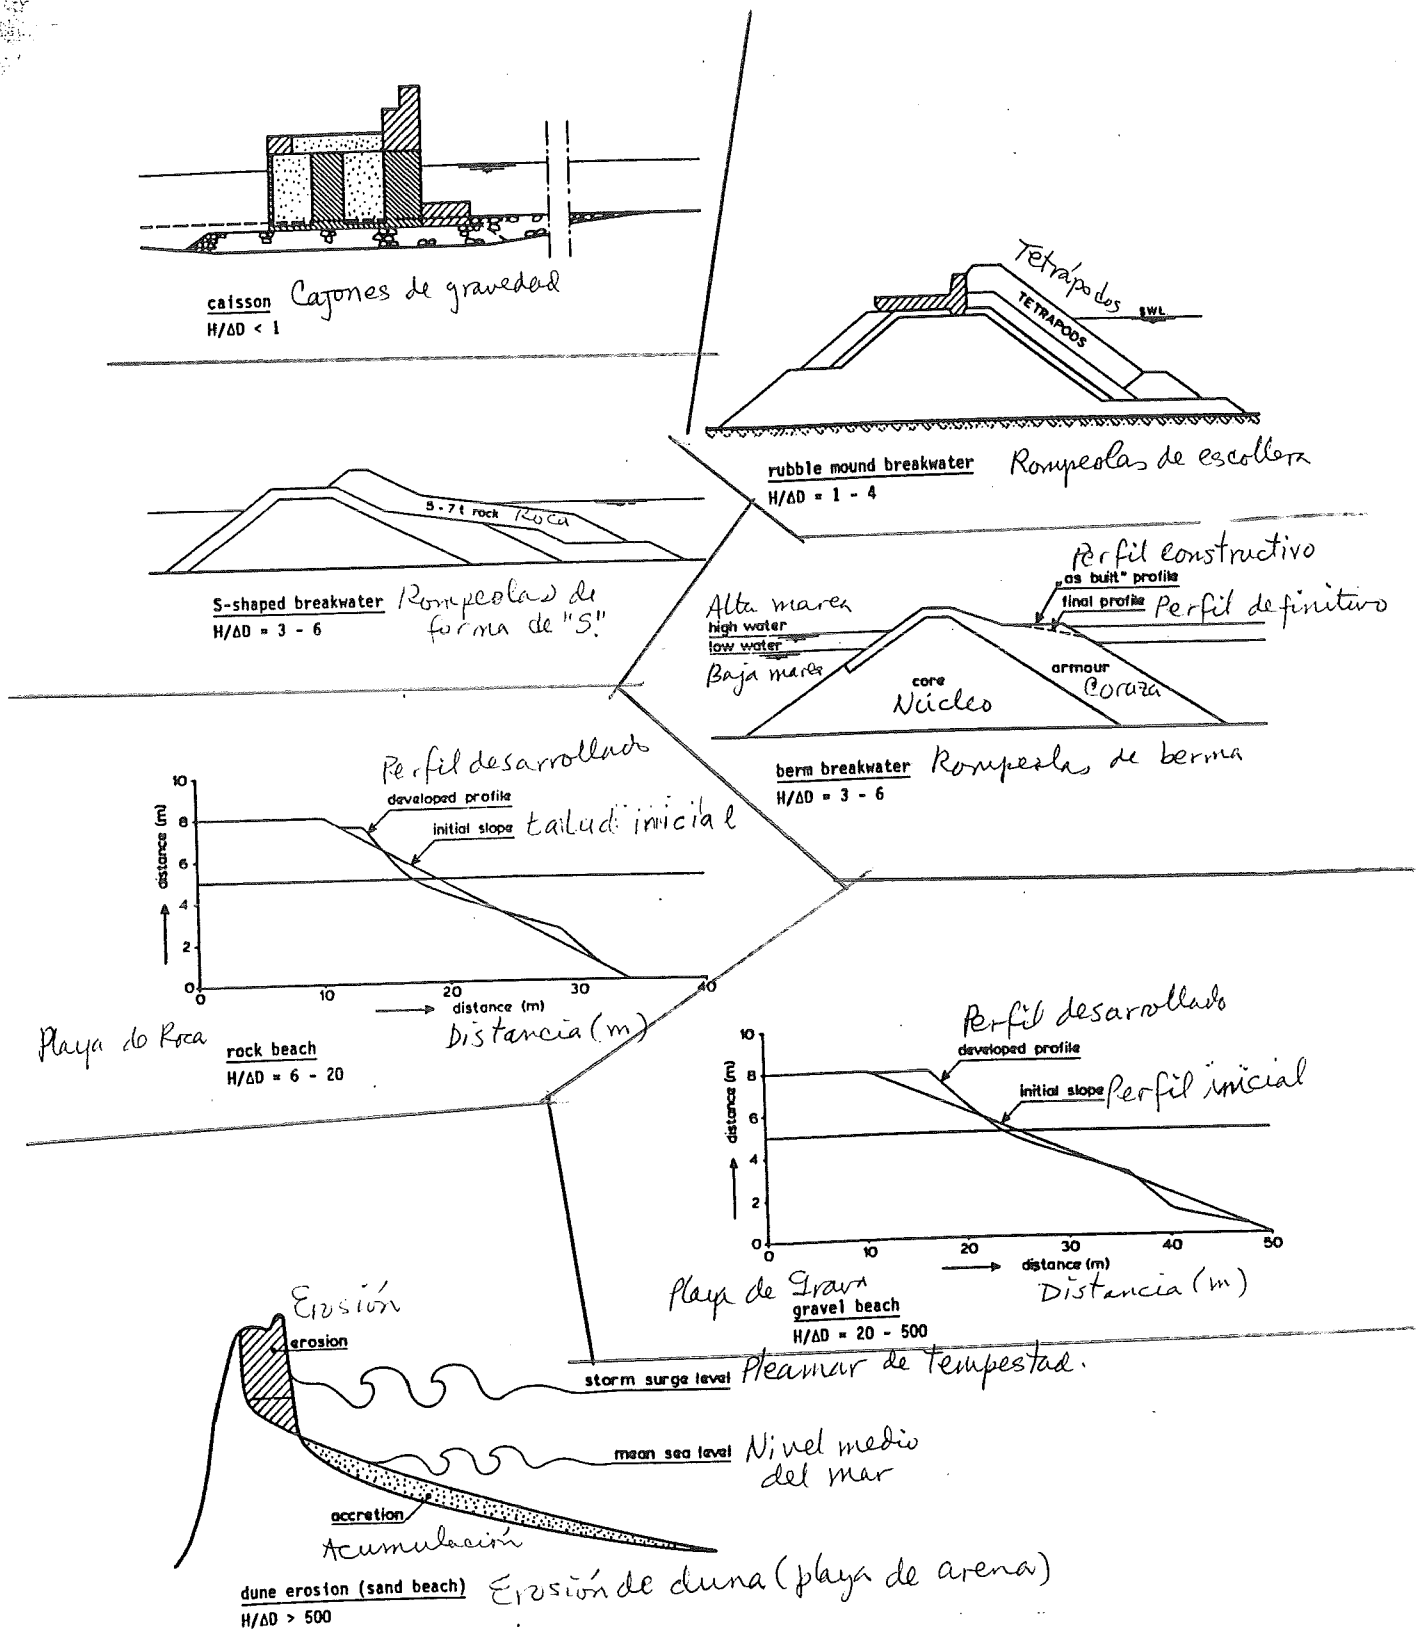 caisson Cajones de gravedad
H/ΔD < 1
Tetrápodos
TETRAPODS
SWL
rubble mound breakwater Rompeolas de escollera
H/ΔD = 1 - 4
5-7t rock Roca
S-shaped breakwater Rompeolas de
forma de "S".
H/ΔD = 3 - 6
Perfil constructivo
„as built" profile
final profile Perfil definitivo
Alta marea
high water
low water
Baja marea
core
Núcleo
armour
Coraza
berm breakwater Rompeolas de berma
H/ΔD = 3 - 6
Perfil desarrollado
developed profile
initial slope talud inicial
distance (m)
10
8
6
4
2
0
0 10 20 30 40
distance (m)
Distancia (m)
Playa de Roca
rock beach
H/ΔD = 6 - 20
Perfil desarrollado
developed profile
initial slope Perfil inicial
distance (m)
10
8
6
4
2
0
0 10 20 30 40 50
distance (m)
Distancia (m)
Playa de Grava
gravel beach
H/ΔD = 20 - 500
Erosión
erosion
storm surge level Pleamar de tempestad.
mean sea level Nivel medio
del mar
accretion
Acumulación
dune erosion (sand beach) Erosión de duna (playa de arena)
H/ΔD > 500